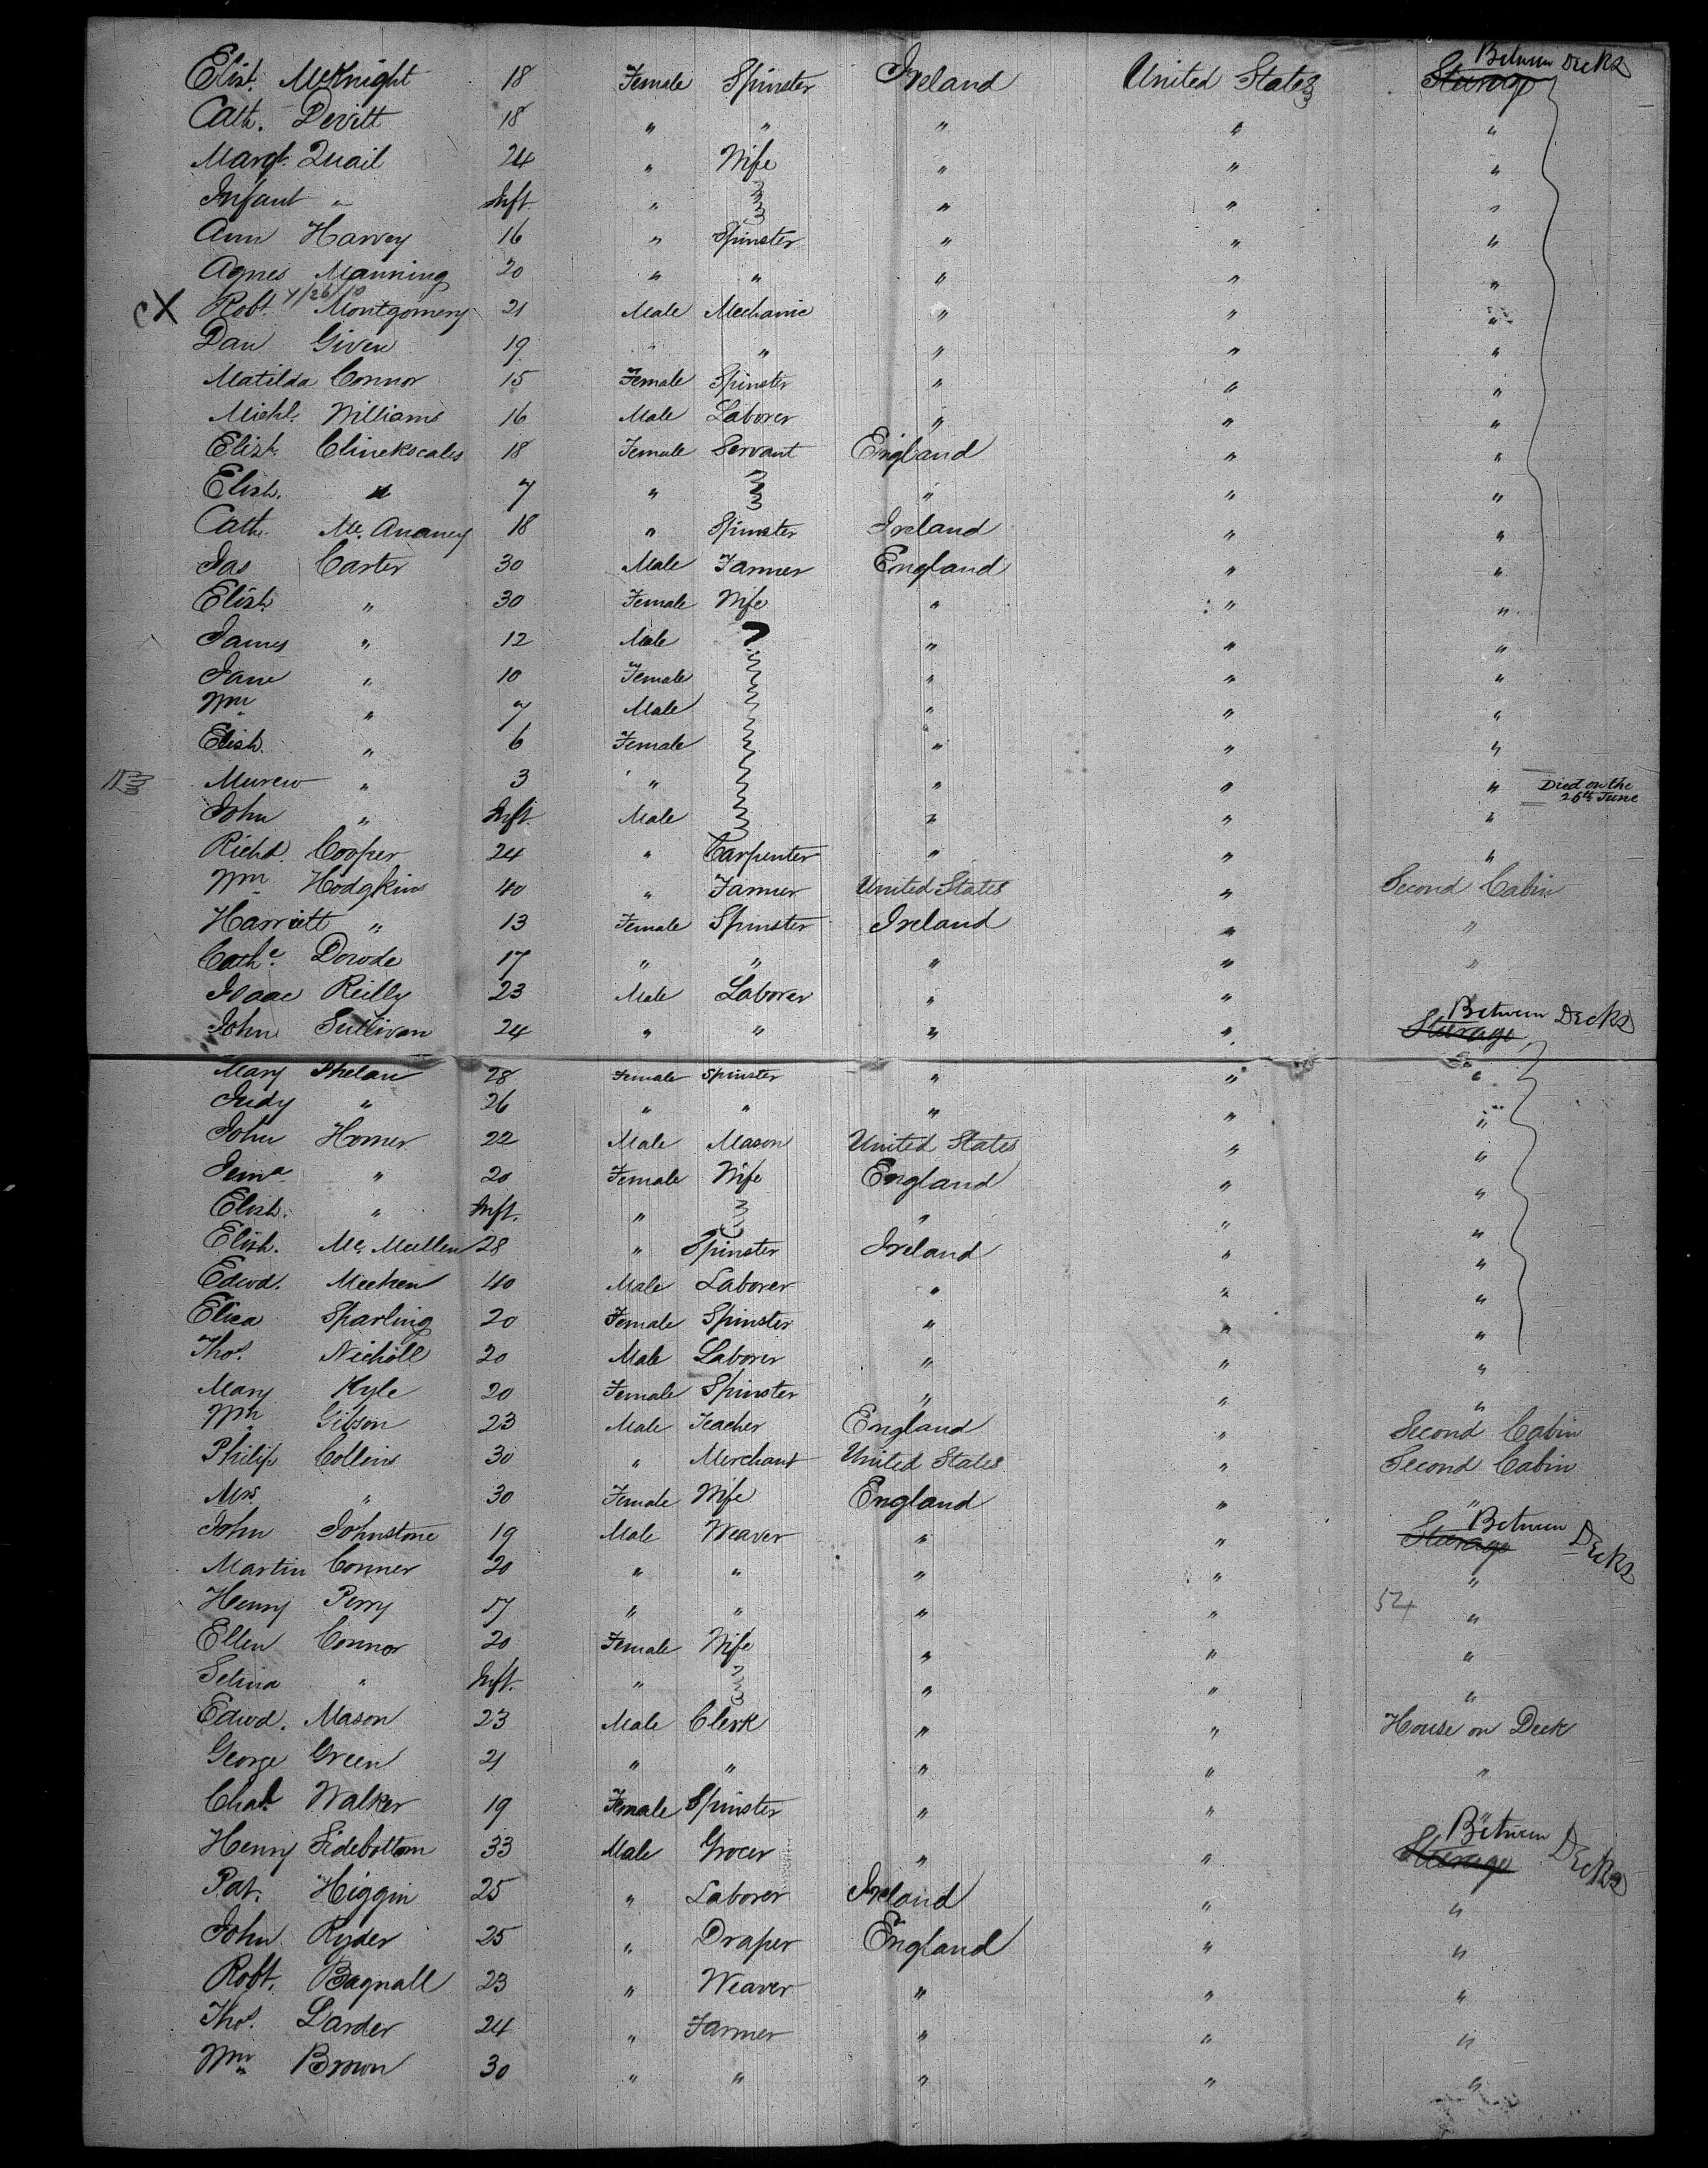 Elizh. McKnight 18 Female Spinster Ireland United States Steerage Between Decks
Cath. Devitt 18 " " " " "
Margt. Quail 24 " Wife " " "
Infant " Inft. " " " "
Ann Harvey 16 " Spinster " " "
Agnes Manning 20 " " " " "
CX Robt. Montgomery 21 Male Mechanic " " "
Dan Given 19 " " " " "
Matilda Connor 15 Female Spinster " " "
Michl. Williams 16 Male Laborer " " "
Elizh. Clinckscales 18 Female Servant England " "
Elizh. " 7 " " " "
Cath. Mc. Ananey 18 " Spinster Ireland " "
Jas Carter 30 Male Farmer England " "
Elizh. " 30 Female Wife " " "
James " 12 Male " " "
Jane " 10 Female " " "
Wm " 7 Male " " "
Elizh. " 6 Female " " "
" 3 " " " " Died on the 26th June
John " Inft. Male " " "
Richd. Cooper 24 " Carpenter " " "
Wm Hodgkins 40 " Farmer United States " Second Cabin
Harriett " 13 Female Spinster Ireland " "
Cathe. Dowde 17 " " " " "
Isaac Reilly 23 Male Laborer " "
John Sullivan 24 " " " " Steerage Between Decks
Mary Phelan 28 Female Spinster " " "
Judy " 26 " " " " "
John Homer 22 Male Mason United States " "
Jema. " 20 Female Wife England " "
Elizh. " Inft. " " " "
Elizh. Mc. Mullen 28 " Spinster Ireland " "
Edwd. Meehen 40 Male Laborer " " "
Eliza Sparling 20 Female Spinster " " "
Thos. Nicholl 20 Male Laborer " " "
Mary Kyle 20 Female Spinster " " "
Wm Gibson 23 Male Teacher England " Second Cabin
Philip Collins 30 " Merchant United States " Second Cabin
Mrs. " 30 Female Wife England " "
John Johnstone 19 Male Weaver " " Steerage Between Decks
Martin Conner 20 " " " " "
Henry Perry " " " " "
Ellen Connor 20 Female Wife " " "
Selina " Inft. " " " "
Edwd. Mason 23 Male Clerk " " House on Deck
George Green 21 " " " " "
Walker 19 Female Spinster " " "
Henry Sidebottom 33 Male Grocer " " Steerage Between Decks
Pat. Higgin 25 " Laborer Ireland " "
John Ryder 25 " Draper England " "
Robt. Bagnall 23 " Weaver " " "
Thos. Larder 24 " Farmer " " "
Wm Brown 30 " " " " "